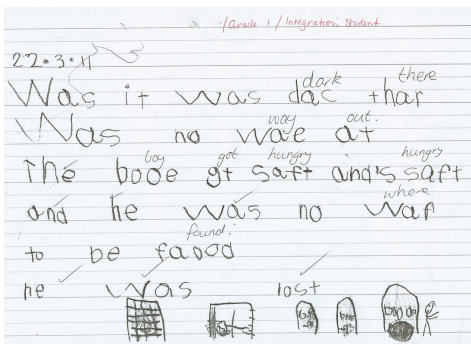 /Grade 1 / Integration Student
22.3.11
dark there
Was it was dac thar
way out.
Was no wae at
boy got hungry hungry
The booe gt saft and's saft
where
and he was no war
found.
to be fabod
he was lost